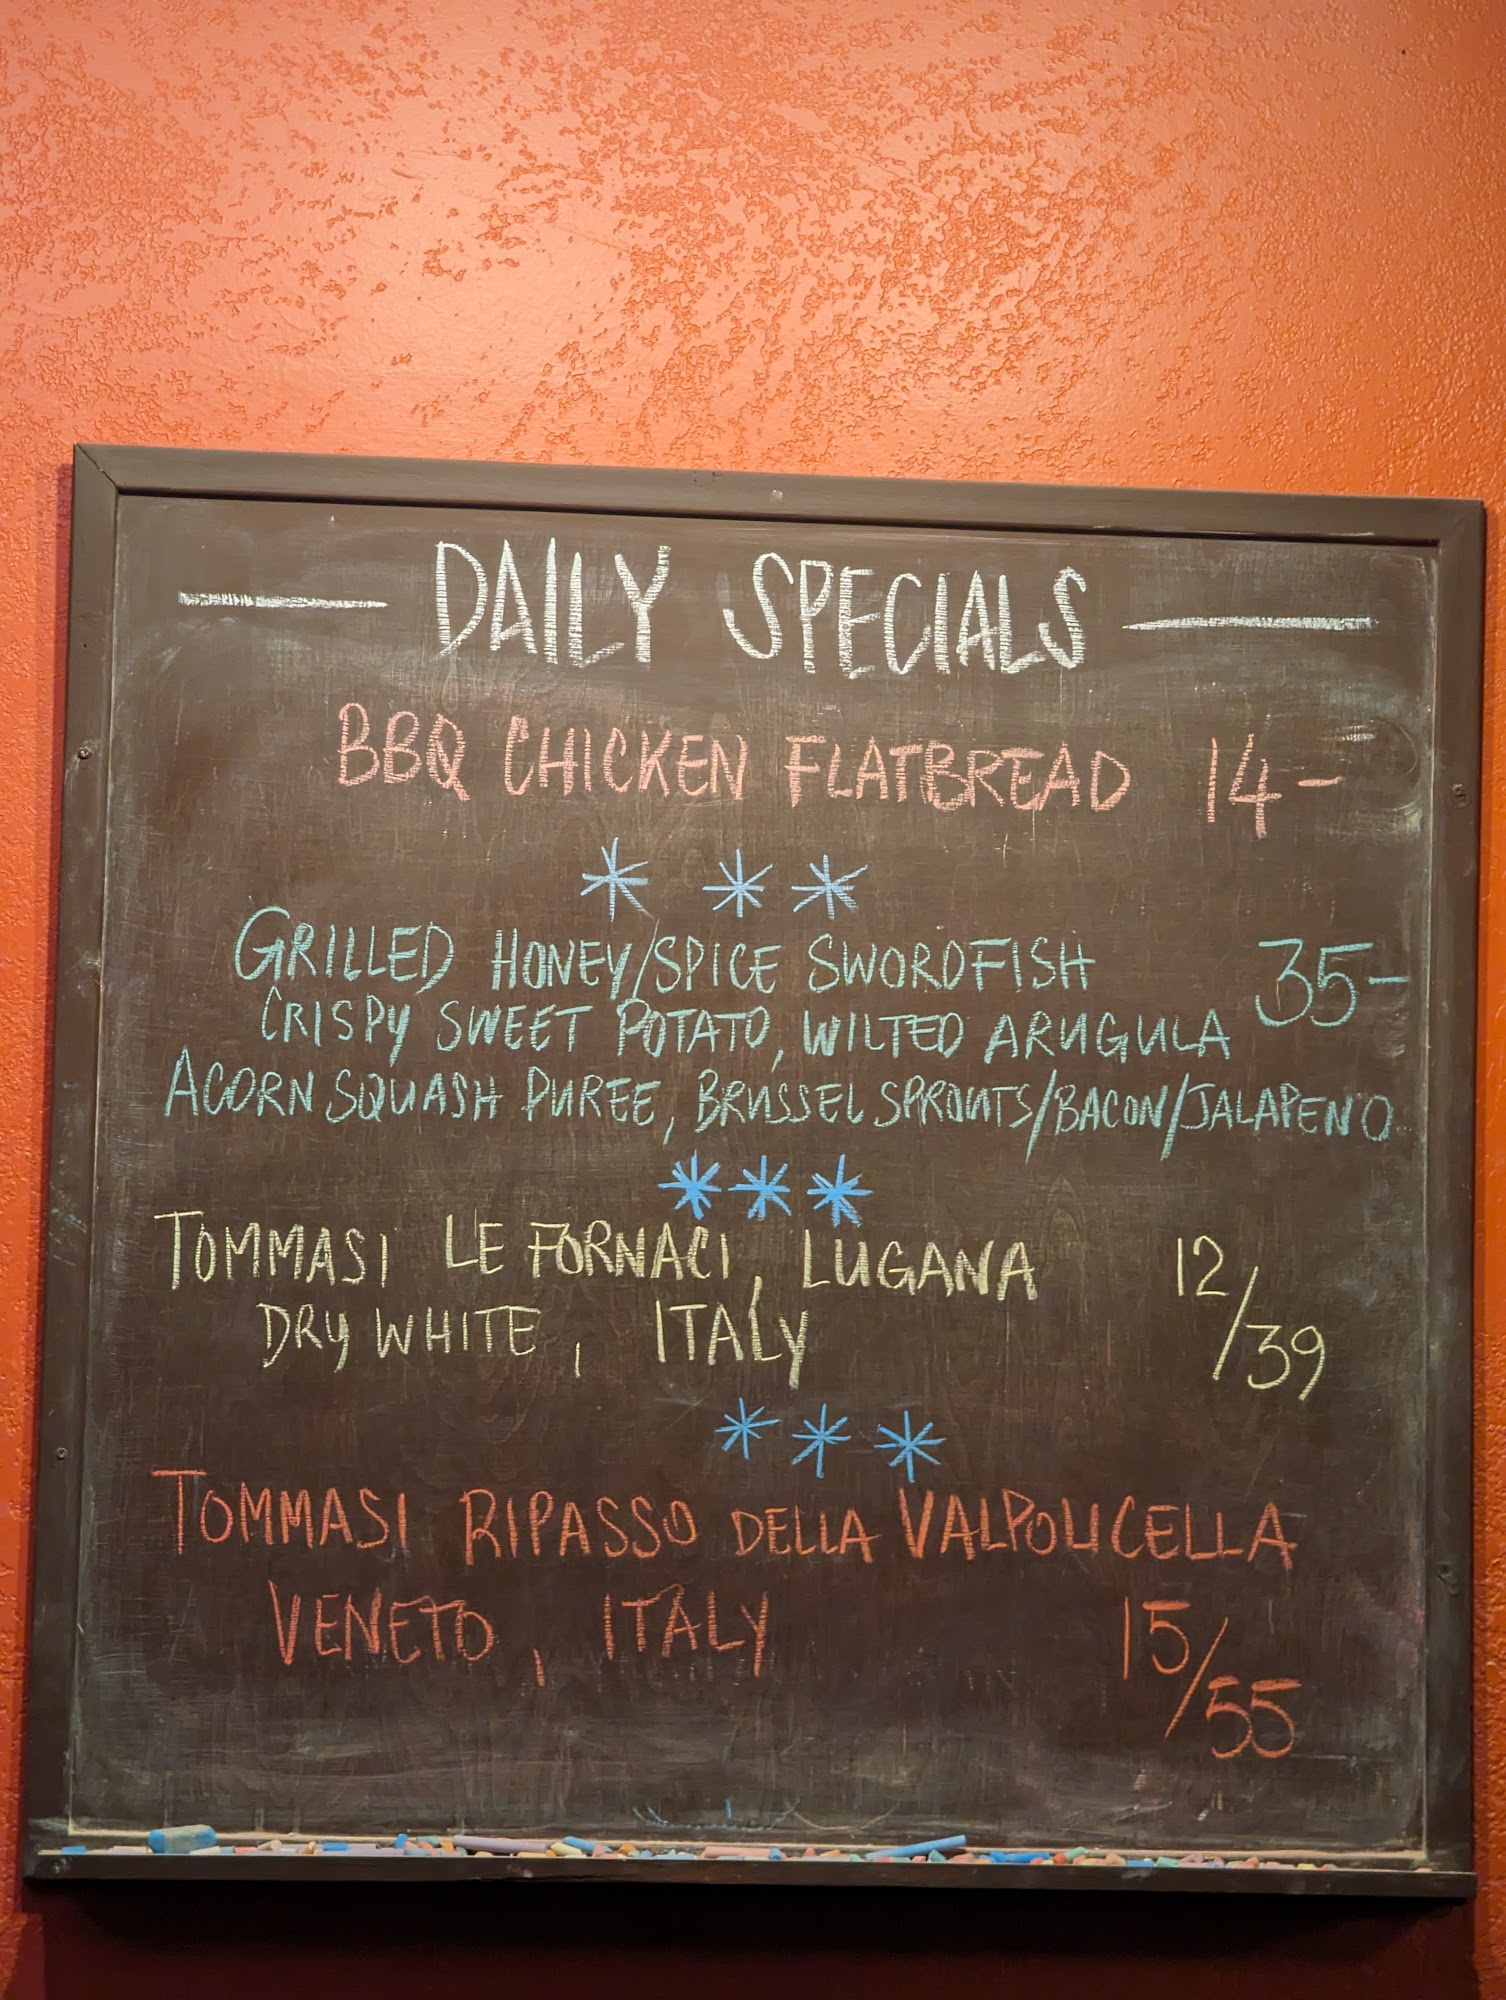 — DAILY SPECIALS —
BBQ CHICKEN FLATBREAD 14-
* * *
GRILLED HONEY/SPICE SWORDFISH 35-
CRISPY SWEET POTATO, WILTED ARUGULA
ACORN SQUASH PUREE, BRUSSEL SPROUTS/BACON/JALAPENO
* * *
TOMMASI LE FORNACI, LUGANA 12/39
DRY WHITE, ITALY
* * *
TOMMASI RIPASSO DELLA VALPOLICELLA
VENETO, ITALY 15/55